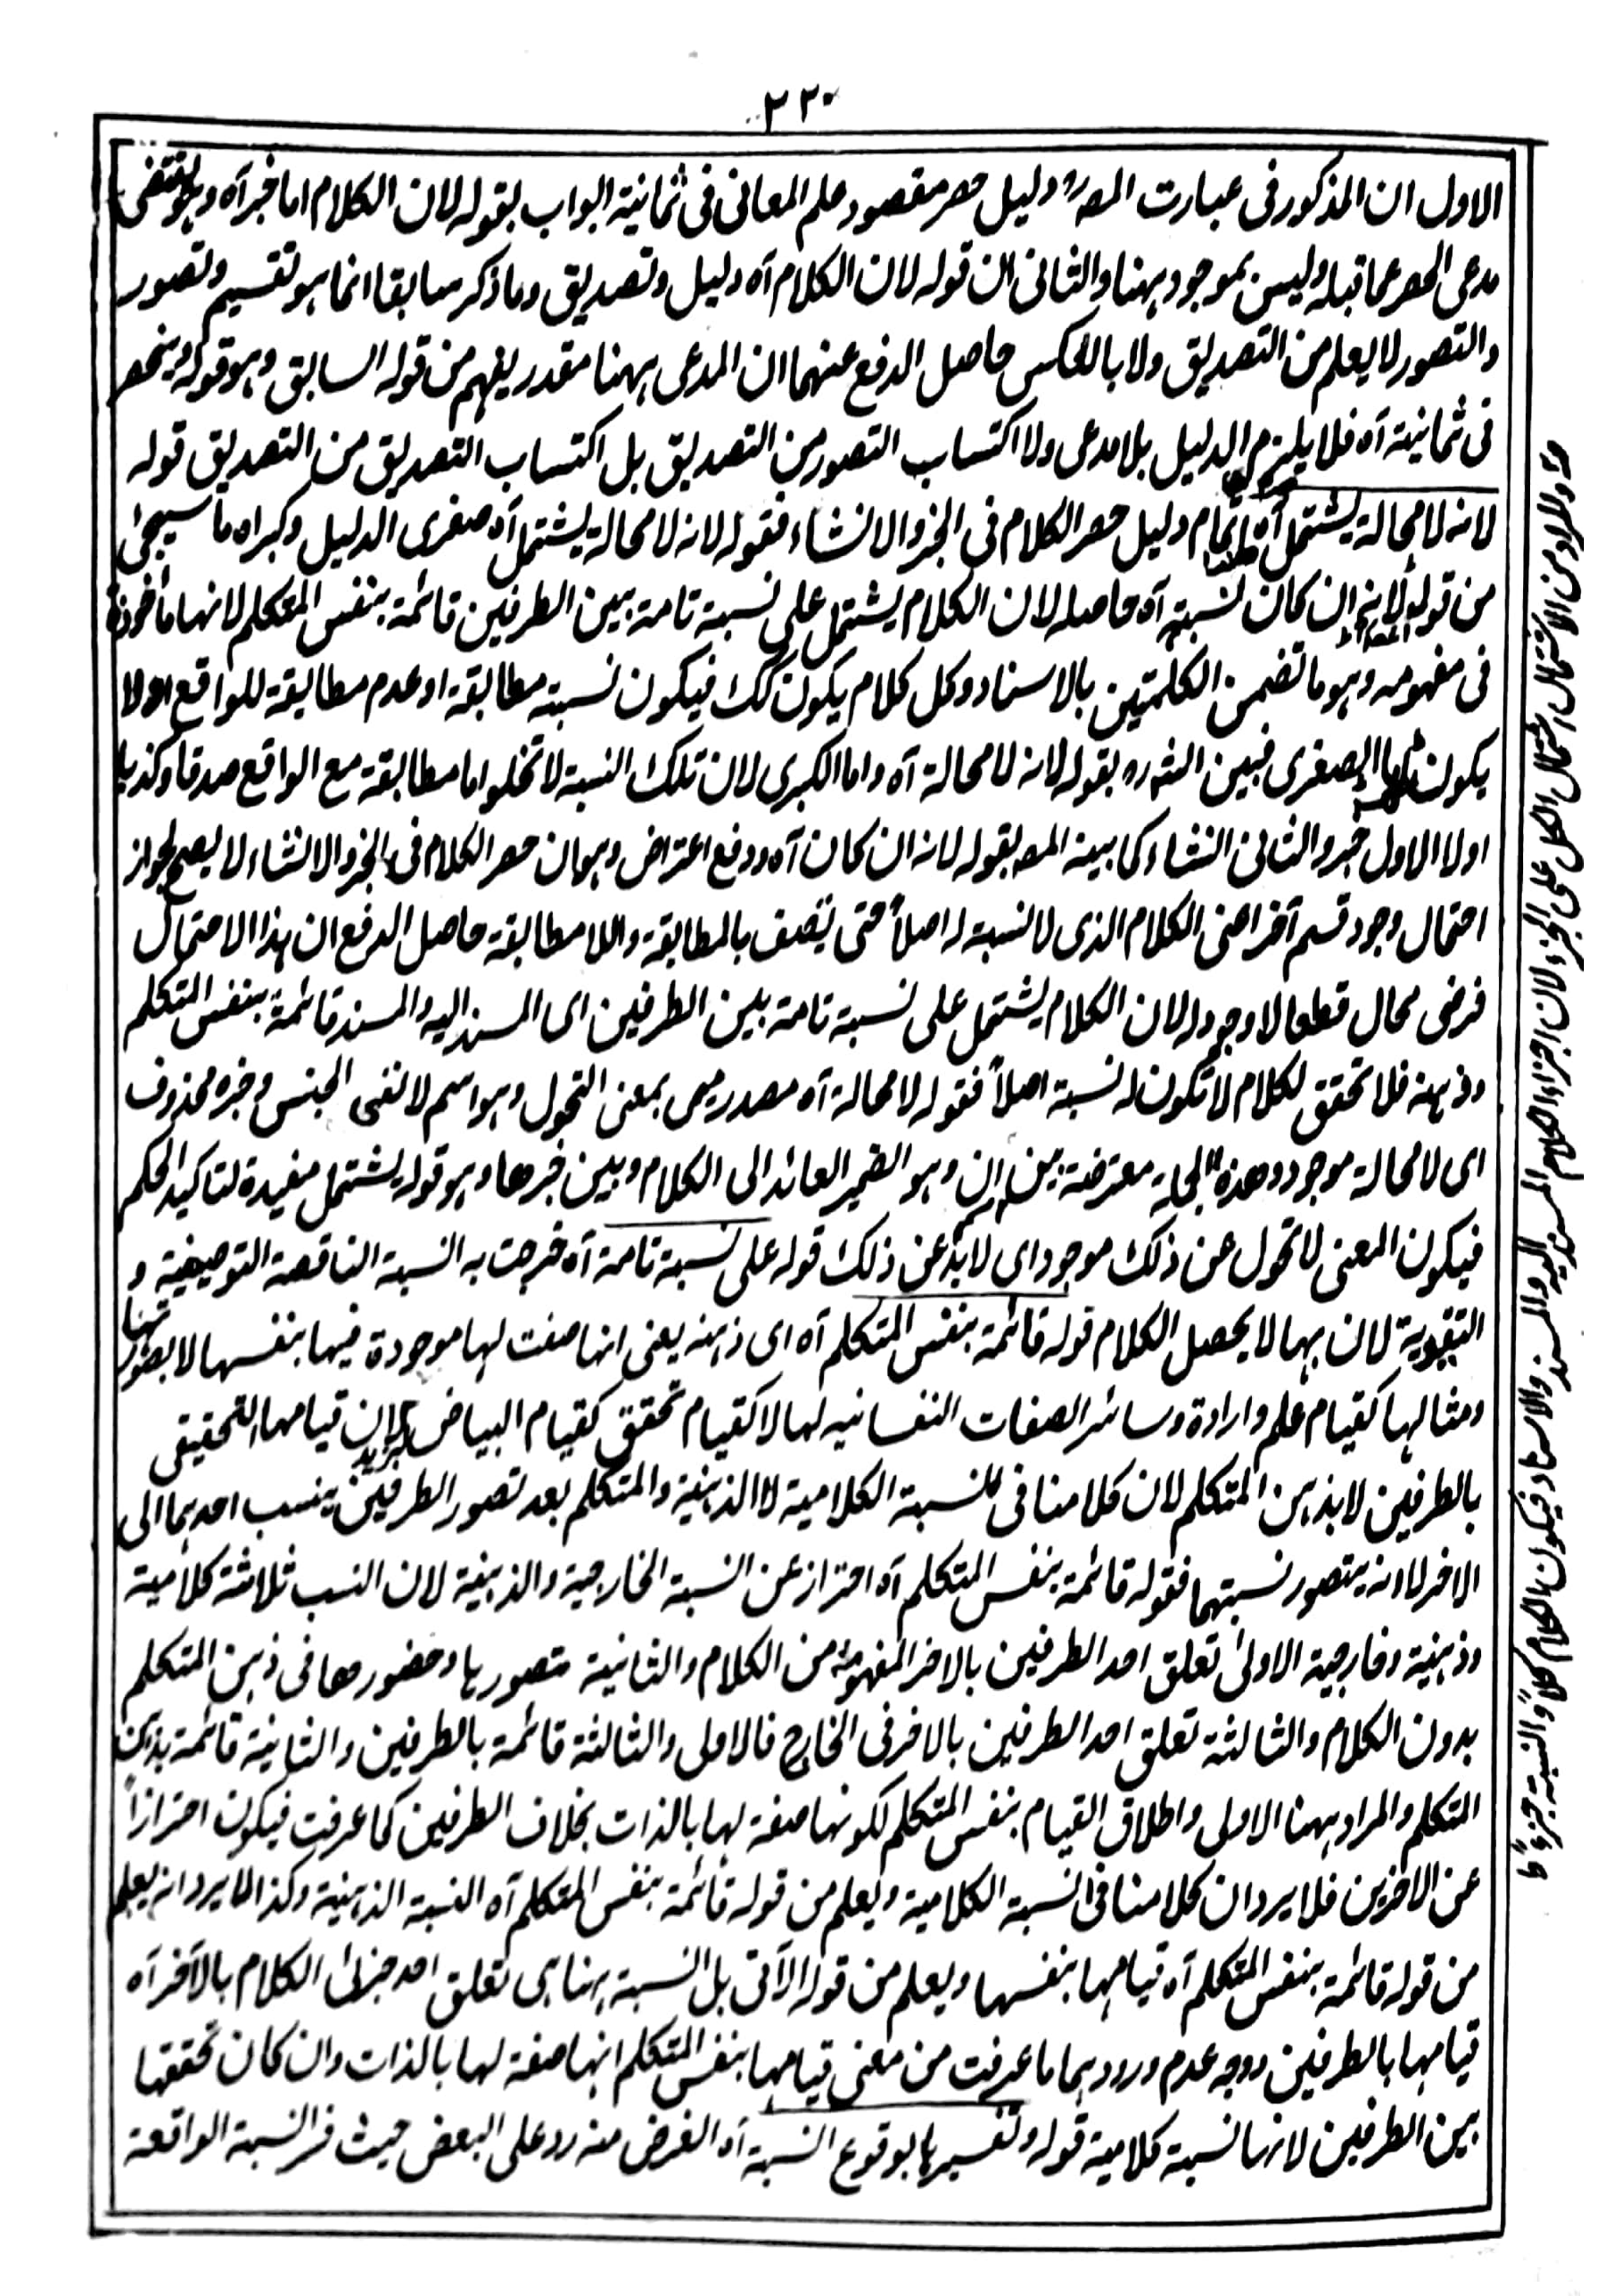 ٣٣٠
الاول ان المذكور فى عبارت المصرہ دليل حصر مقصود علم المعانى فى ثمانية ابواب بقوله لان الكلام اما خبر آه وہو يقتضى
مدعى الحصر عما قبله وليس بموجود ہہنا والثانى ان قوله لان الكلام آه دليل وتصديق وما ذكر سابقا انما ہو تقسيم وتصور
والتصور لا يعلم من التصديق ولا بالعكس حاصل الدفع عنہما ان المدعى ہہنا مقدر يفہم من قوله السابق وہو قوله وينحصر
فى ثمانية آه فلا يلزم الدليل بلا مدعى ولا اكتساب التصور من التصديق بل اكتساب التصديق من التصديق قوله
لانه لا محالة يشتمل آه تمام دليل حصر الكلام فى الخبر والانشاء فقوله لانه لا محالة يشتمل آه صغرى الدليل وكبراه ما سيجئ
من قوله لانه ان كان لنسبته آه حاصله لان الكلام يشتمل على نسبة تامة بين الطرفين قائمة بنفس المتكلم لانها مأخوذة
فى مفہومه وہو ما تضمن الكلمتين بالاسناد وكل كلام يكون كك فيكون نسبته مطابقة او عدم مطابقة للواقع اولا
يكون الصغرى فبين الشرہ بقوله لانه لا محالة آه واما الكبرى لان تلك النسبة لا تخلوا اما مطابقة مع الواقع صدقا وكذبا
اولا الاول خبر والثانى انشاء كما بينه المصہ بقوله لانه ان كان آه ودفع اعتراض وہو ان حصر الكلام فى الخبر والانشاء لا يصح لجواز
احتمال وجود قسم آخر اعنى الكلام الذى لا نسبة له اصلاً حتى يتصف بالمطابقة واللا مطابقة حاصل الدفع ان ہذا الاحتمال
فرضى محال قطعا لا وجود له لان الكلام يشتمل على نسبة تامة بين الطرفين اى المسند اليه والمسند قائمة بنفس المتكلم
وذہنه فلا تحقق لكلام لا تكون له نسبة اصلاً فقوله لا محالة آه مصدر ميمى بمعنى التحول وہو اسم لا لنفى الجنس وخبره محذوف
اى لا محالة موجود وهذه الجملة معترضة بين اسم ان وہو الضمير العائد الى الكلام وبين خبرها وہو قوله يشتمل مفيدة لتاكيد الحكم
فيكون المعنى لا تحول عن ذلك موجود اى لا بد عن ذلك قوله على نسبة تامة آه خرجت به النسبة الناقصة التوصيفية و
التقييدية لان بہما لا يحصل الكلام قوله قائمة بنفس المتكلم آه اى ذہنه يعنى انہا صفت لہا موجودة فيہا بنفسہا لا بصورتہا
ومثالہا كقيام علم وارادة وسائر الصفات النفسانيه لہا لا كقيام تحقق كقيام البياض بزيد لان قيامہا التحقيقى
بالطرفين لا بذہن المتكلم لان كلامنا فى النسبة الكلامية لا الذہنية والمتكلم بعد تصور الطرفين ينسب احدہما الى
الاخر لا انه يتصور نسبتہما فقوله قائمة بنفس المتكلم آه احتراز عن النسبة الخارجية والذہنية لان النسب ثلاثة كلامية
وذہنية وخارجية الاولى تعلق احد الطرفين بالاخر المفہومة من الكلام والثانية تصورہا وحضورها فى ذہن المتكلم
بدون الكلام والثالثة تعلق احد الطرفين بالاخر فى الخارج فالاولى والثالثة قائمة بالطرفين والثانية قائمة بذہن
المتكلم والمراد ہہنا الاولى واطلاق القيام بنفس المتكلم لكونہا صفة لہا بالذات بخلاف الطرفين كما عرفت فيكون احترازاً
عن الاخرين فلا يرد ان كلامنا فى النسبة الكلامية ويعلم من قوله قائمة بنفس المتكلم آه النسبة الذہنية وكذا لا يرد انه يعلم
من قوله قائمة بنفس المتكلم آه قيامہا بنفسہا ويعلم من قوله الآتى بل النسبة ہہنا ہى تعلق احد جزئى الكلام بالآخر آه
قيامہا بالطرفين ووجه عدم ورودہما ما عرفت من معنى قيامہا بنفس المتكلم انہا صفة لہا بالذات وان كان تحققہا
بين الطرفين لانہا نسبة كلامية قوله وتفسيرہا بوقوع النسبة آه الغرض منه رد على البعض حيث فسر النسبة الواقعة
والمراد من الاشتمال اشتمال الكل على الجزء لان اجزاء الكلام المسند اليه والمسند والاسناد فيكون الكلام كلاً والنسبة جزءً